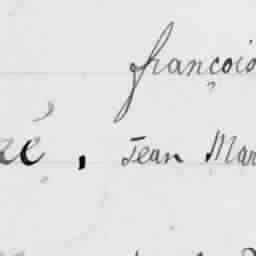 françois
zé, Jean Mar